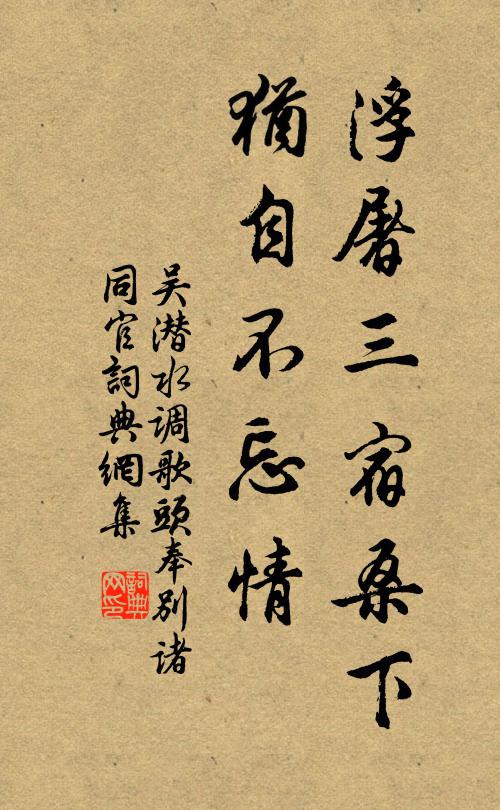 浮屠三宿桑下
猶自不忘情
吴潜水调歌頭奉別诸
同官詞典網集
詞典网印